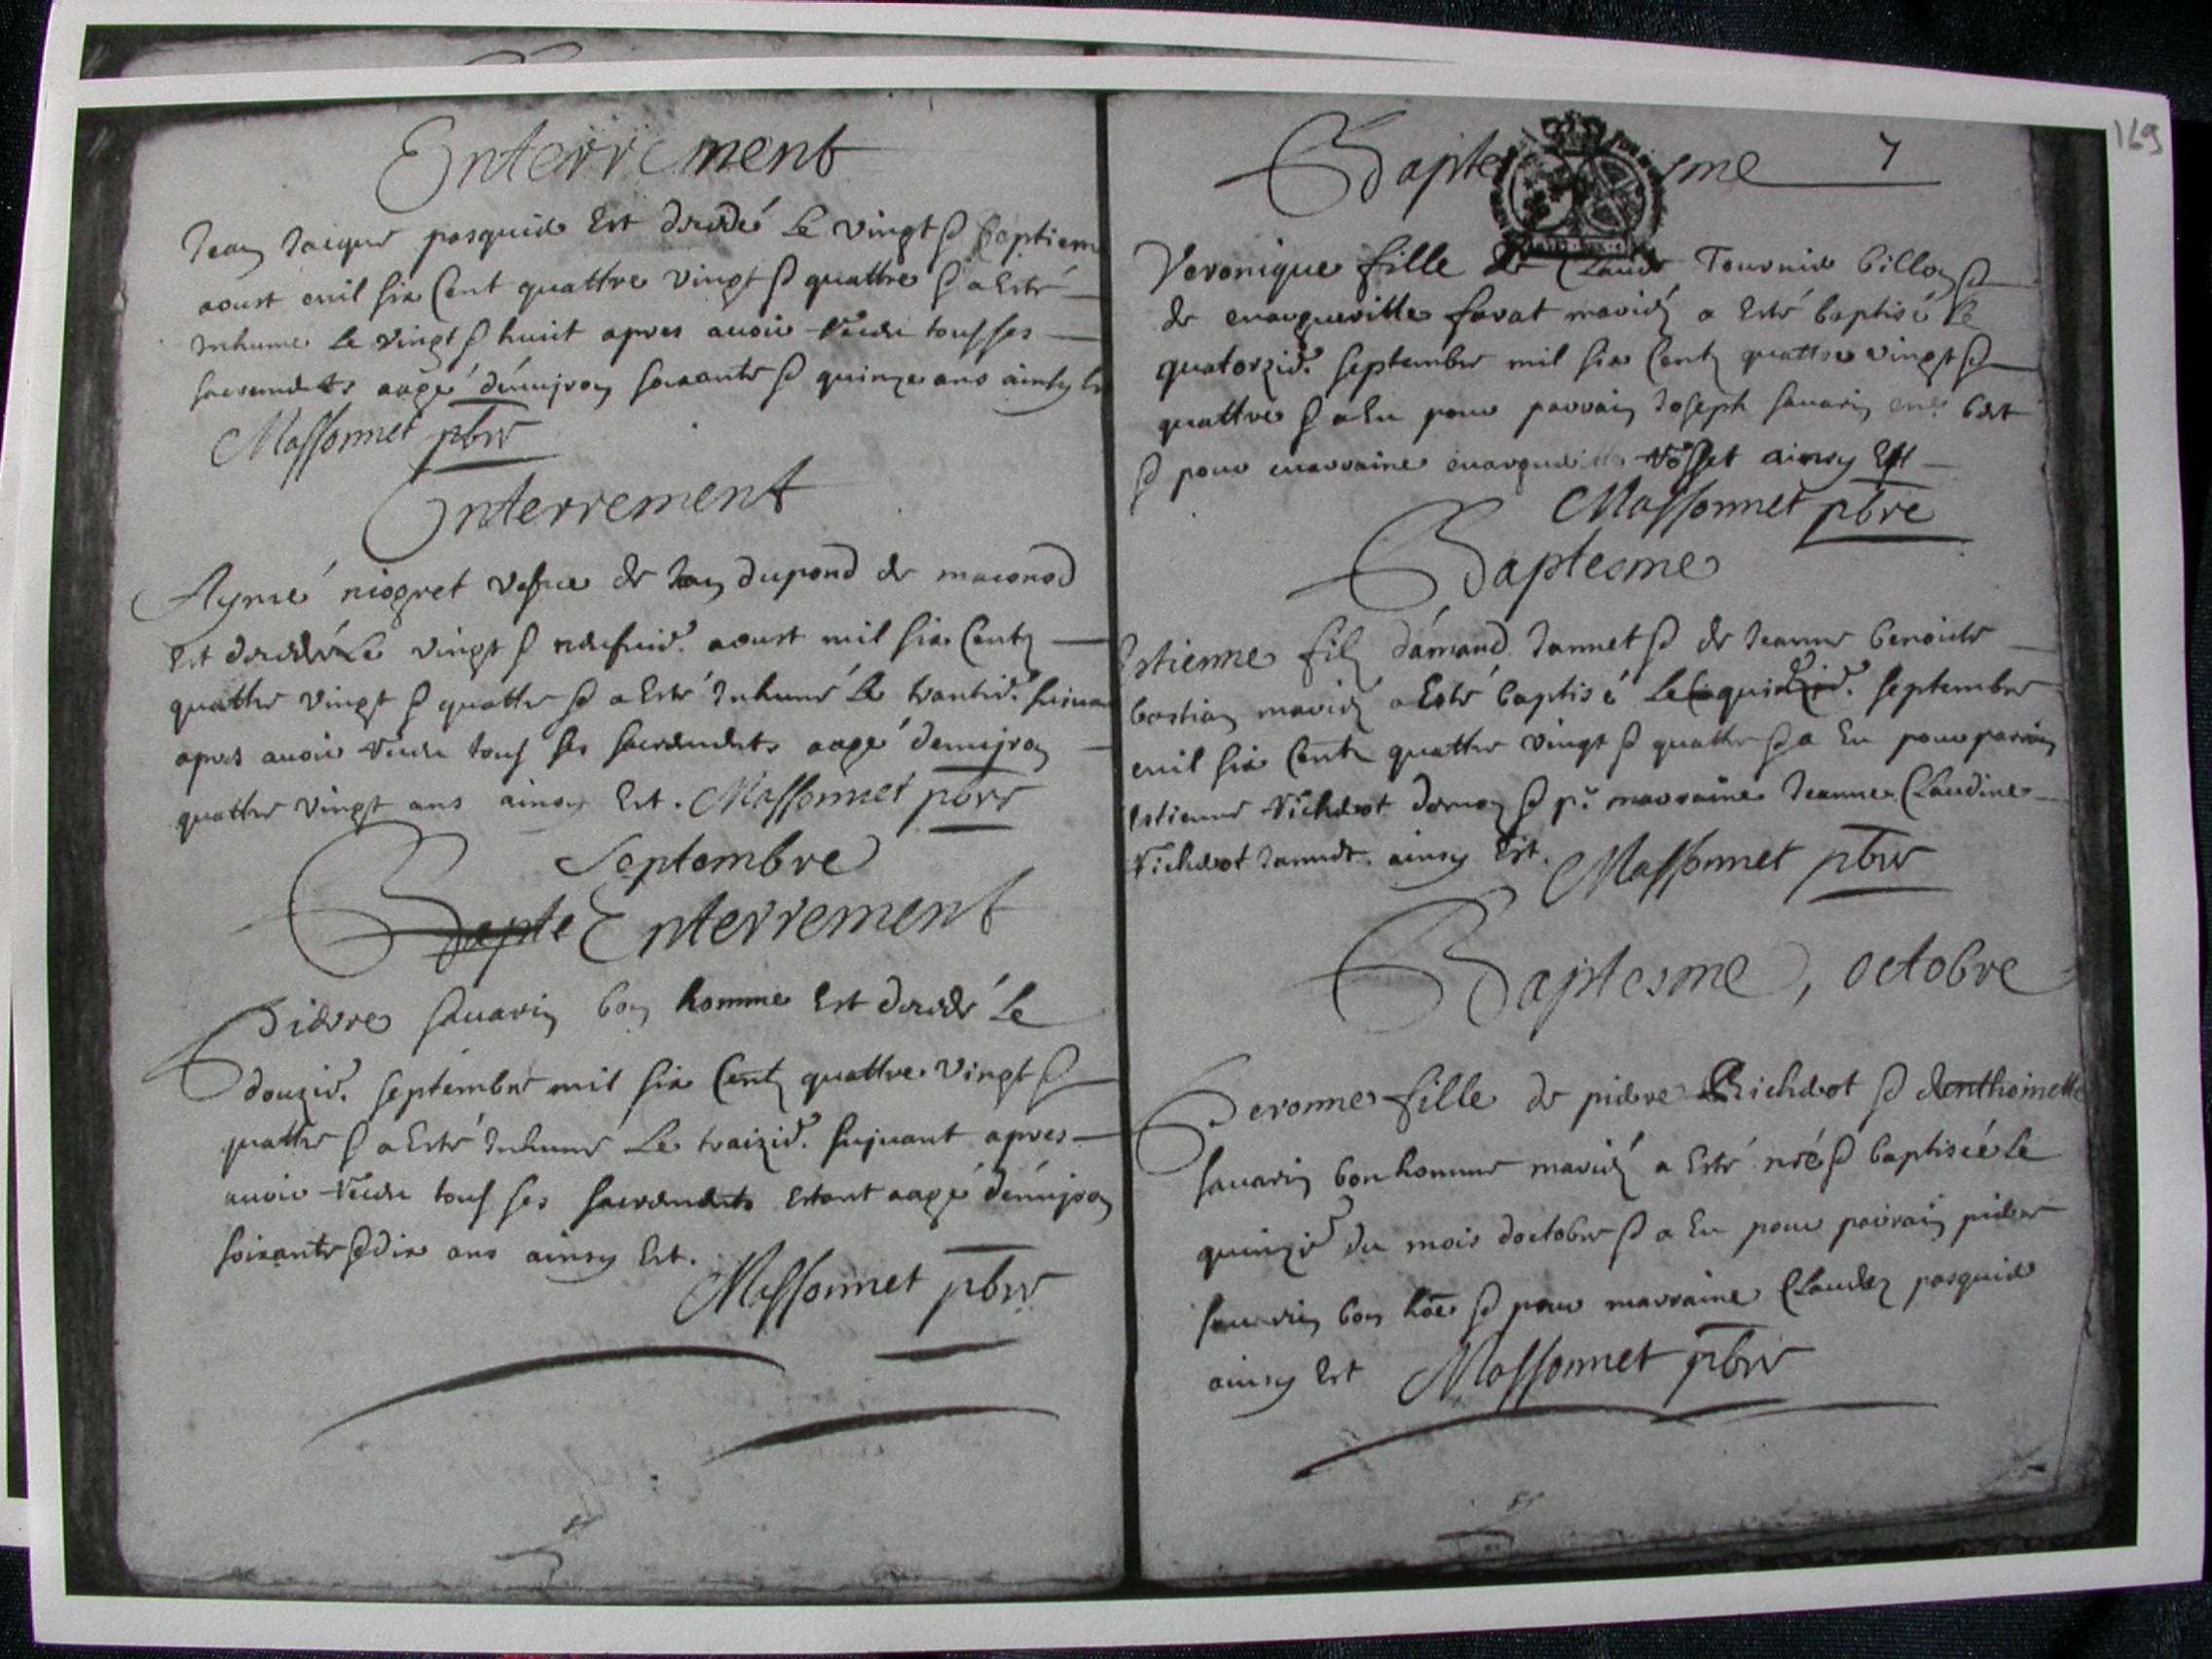 Enterrement
Jean Jacques pasquier Est decedé Le vingt & septiem
aoust mil six Cent quattre vingt & quattre & a Esté
Inhume Le vingt & huit apres auoir Receu tous ses
sacrements aagé d'enuiron soixante & quinze ans ainsy Est
Massonnet pbre
Enterrement
Aymé niogret vefue de Jean dupond de maconod
Est decedé Le vingt & neufuie. aoust mil six Centz
quattre vingt & quattre & a Esté Inhumé Le trantie. suiua
apres auoir Receu tous ses sacrements aagé denuiron
quattre vingt ans ainsy Est. Massonnet pbre
Septembre
Bapte Enterrement
Pierre sauarin bon homme Est decedé Le
douzie. septembre mil six Centz quattre vingt &
quattre & a Esté Inhumé Le traizie. suiuant apres
auoir Receu tous ses sacrements Estant aagé d'enuiron
soixante & dix ans ainsy Est.
Massonnet pbre
169
Baptesme 7
Veronique fille de Claude Tournier billon &
de margueritte favat mariéz a Esté baptisé Le
quatorzie. septembre mil six Centz quattre vingt &
quattre & a Eu pour parrain Joseph sauarin
& pour marraine Rosset ainsy Est
Massonnet pbre
Baptesme
Estienne filz d'amand Jannet & de Jeanne benoicte
bastian mariéz a Esté baptisé Le septembre
mil six Centz quattre vingt & quattre & a Eu pour parrain
Estienne Richerot & pr marraine Jeanne Claudine
Richerot Jannet. ainsy Est. Massonnet pbre
Baptesme, octobre
Peronne fille de pierre Richerot & denthoinette
sauarin bonhomme mariéz a Esté né & baptisée Le
quinzie du mois doctobre & a Eu pour pairain pierre
sauarin bon hoe & pour marraine Claudez pasquier
ainsy Est Massonnet pbre